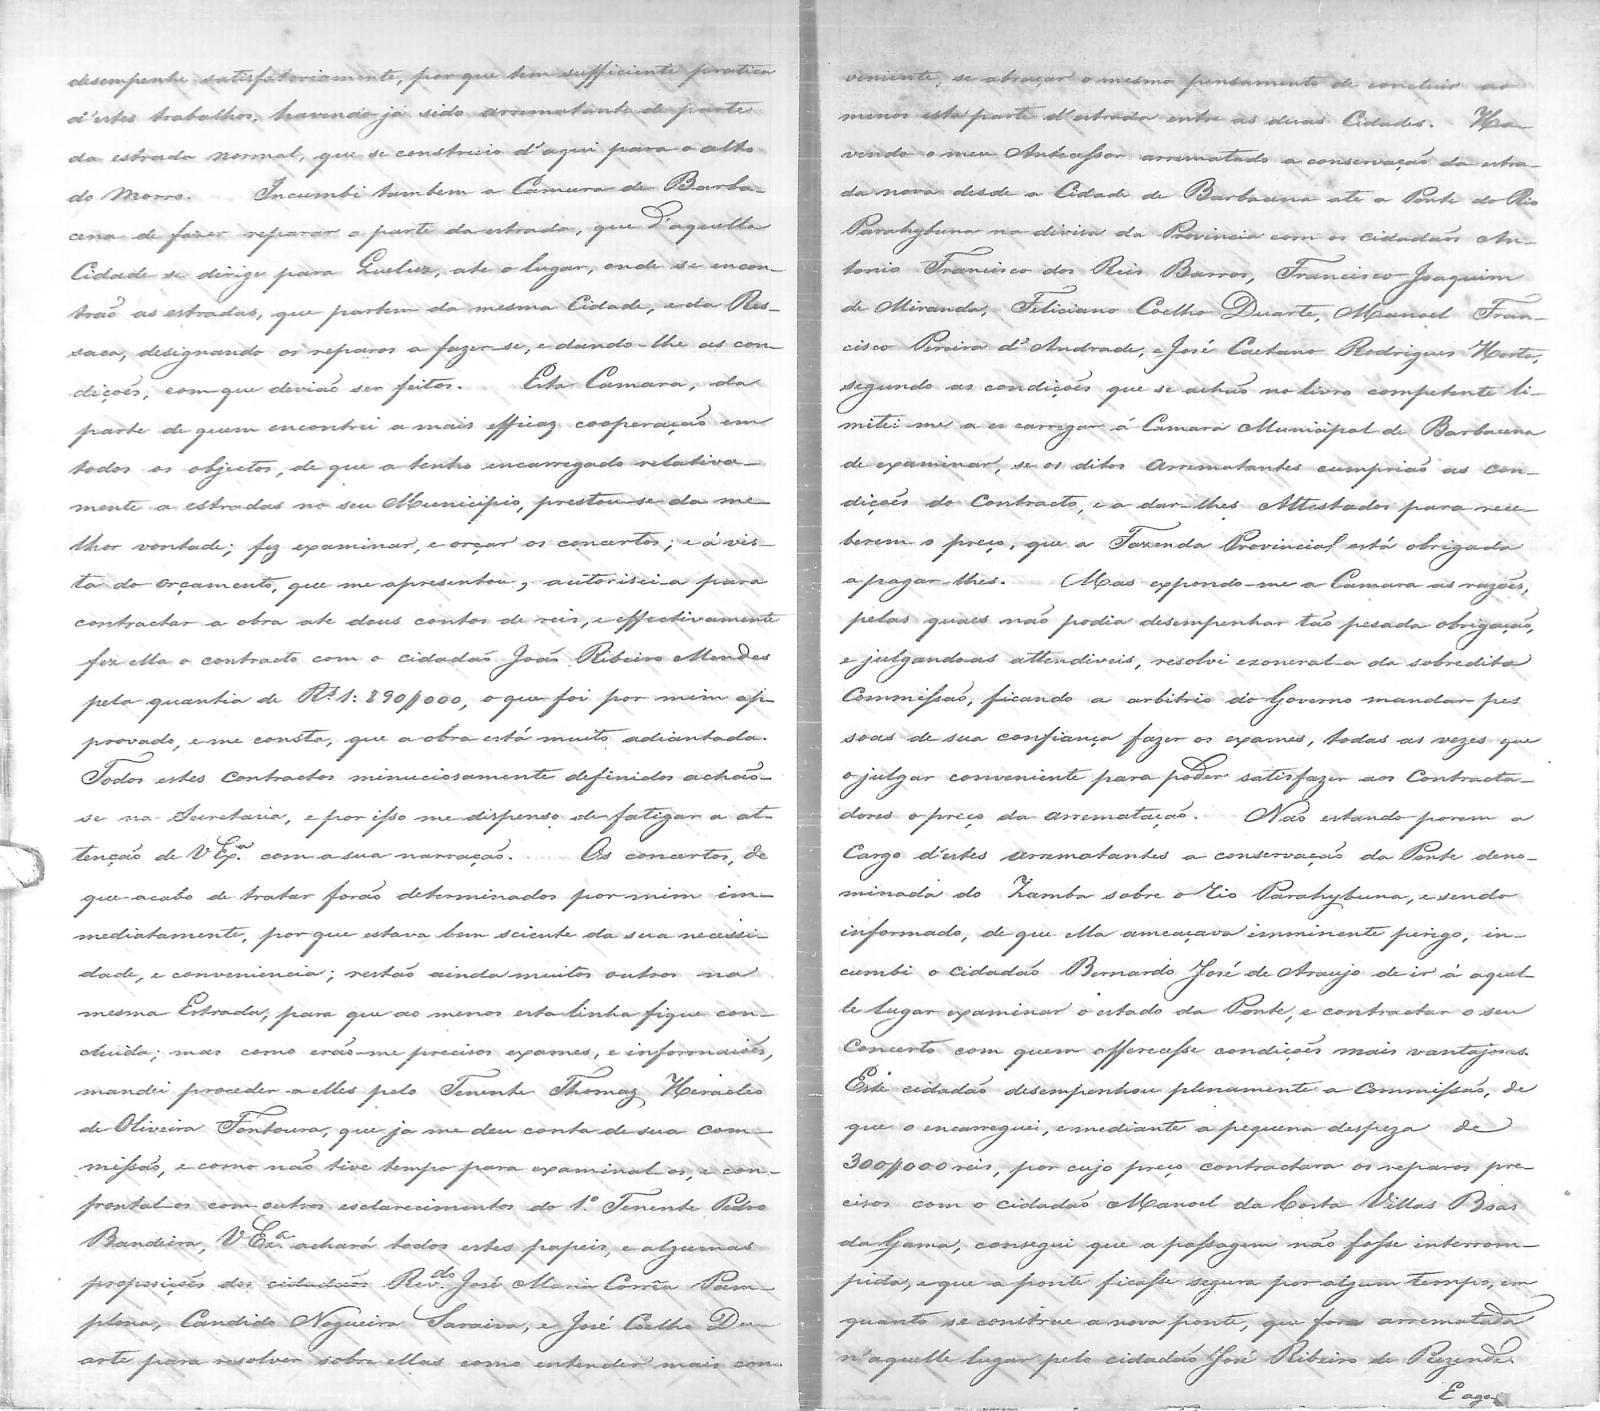 desempenhe satisfatoriamente, porque tem sufficiente pratica
d'estes trabalhos, havendo já sido arrematante de parte
da estrada normal, que se construio d'aqui para o alto
do Morro. Incumbi tambem a Camara de Barba-
cena de fazer reparar a parte da estrada, que d'aquella
Cidade se dirige para Queluz, ate o lugar, onde se encon-
trão as estradas, que partem da mesma Cidade, e da Res-
saca, designando os reparos a fazer-se, e dando-lhe as con-
dições, com que devião ser feitos. Esta Camara, da
parte de quem encontrei a mais efficaz cooperação em
todos os objectos, de que a tenho encarregado relativa-
mente a estradas no seu Municipio, prestou-se da me-
lhor vontade; fez examinar, e orçar os concertos; e á vis-
ta do orçamento, que me apresentou, autorisei-a para
contractar a obra ate dous contos de reis, e effectivamente
fez ella o contracto com o cidadão João Ribeiro Mendes
pela quantia de Rs. 1:890//000, o que foi por mim ap-
provado, e me consta, que a obra está muito adiantada.
Todos estes contractos minuciosamente definidos achão-
se na Secretaria, e por isso me dispenso de fatigar a at-
tenção de V Ex.ª com a sua narração. Os concertos, de
que acabo de tratar forão determinados por mim im-
mediatamente, porque estava bem sciente da sua necessi-
dade, e conveniencia; restão ainda muitos outros na
mesma Estrada, para que ao menos esta linha fique con-
cluida; mas como erão-me precisos exames, e informações,
mandei proceder a elles pelo Tenente Thomaz Heracleo
de Oliveira Fontoura, que ja me deu conta de sua com-
missão, e como não tive tempo para examinal-os, e con-
frontal-os com outros esclarecimentos do 1.º Tenente Pedro
Bandeira, V Ex.ª achará todos estes papeis, e algumas
proposições dos cidadãos Rev.do José Maria Corrêa Pam-
plona, Candido Nogueira Saraiva, e José Coelho Du-
arte para resolver sobre ellas como entender mais con-
veniente, se abraçar o mesmo pensamento de concluir ao
menos esta parte d'estrada entre as duas Cidades. Ha-
vendo o meu Antecessor arrematado a conservação da estra-
da nova desde a Cidade de Barbacena ate a Ponte do Rio
Parahybuna na divisa da Provincia com os cidadãos An-
tonio Francisco dos Reis Barros, Francisco Joaquim
de Miranda, Feliciano Coelho Duarte, Manoel Fran-
cisco Pereira d'Andrade, e José Caetano Rodrigues Horta,
segundo as condições que se achão no livro competente li-
mitei-me a encarregar á Camara Municipal de Barbacena
de examinar, se os ditos Arrematantes cumprião as con-
dições do Contracto, e a dar-lhes Attestados para rece-
berem o preço, que a Fazenda Provincial está obrigada
a pagar-lhes. Mas expondo-me a Camara as razões,
pelas quaes não podia desempenhar tão pesada obrigação,
e julgando-as attendiveis, resolvi exoneral-a da sobredita
Commissão, ficando a arbitrio do Governo mandar pes
soas de sua confiança fazer os exames, todas as vezes que
o julgar conveniente para poder satisfazer aos Contracta-
dores o preço da arrematação. Não estando porem a
Cargo d'estes arrematantes a conservação da Ponte deno-
minada do Zamba sobre o Rio Parahybuna, e sendo
informado, de que ella ameaçava imminente perigo, in-
cumbi o cidadão Bernardo José de Araujo de ir à aquel-
le lugar examinar o estado da Ponte, e contractar o seu
Concerto com quem offerecesse condições mais vantajosas.
Este cidadão desempenhou plenamente a Commissão, de
que o encarreguei, e mediante a pequena despeza de
300//000 reis, por cujo preço contractara os reparos pre-
cisos com o cidadão Manoel da Costa Villas Boas
da Gama, consegui que a passagem não fosse interrom-
pida, e que a ponte ficasse segura por algum tempo, em
quanto se construe a nova ponte, que fora arrematada
n'aquelle lugar pelo cidadão José Ribeiro de Rezende.
E ago-